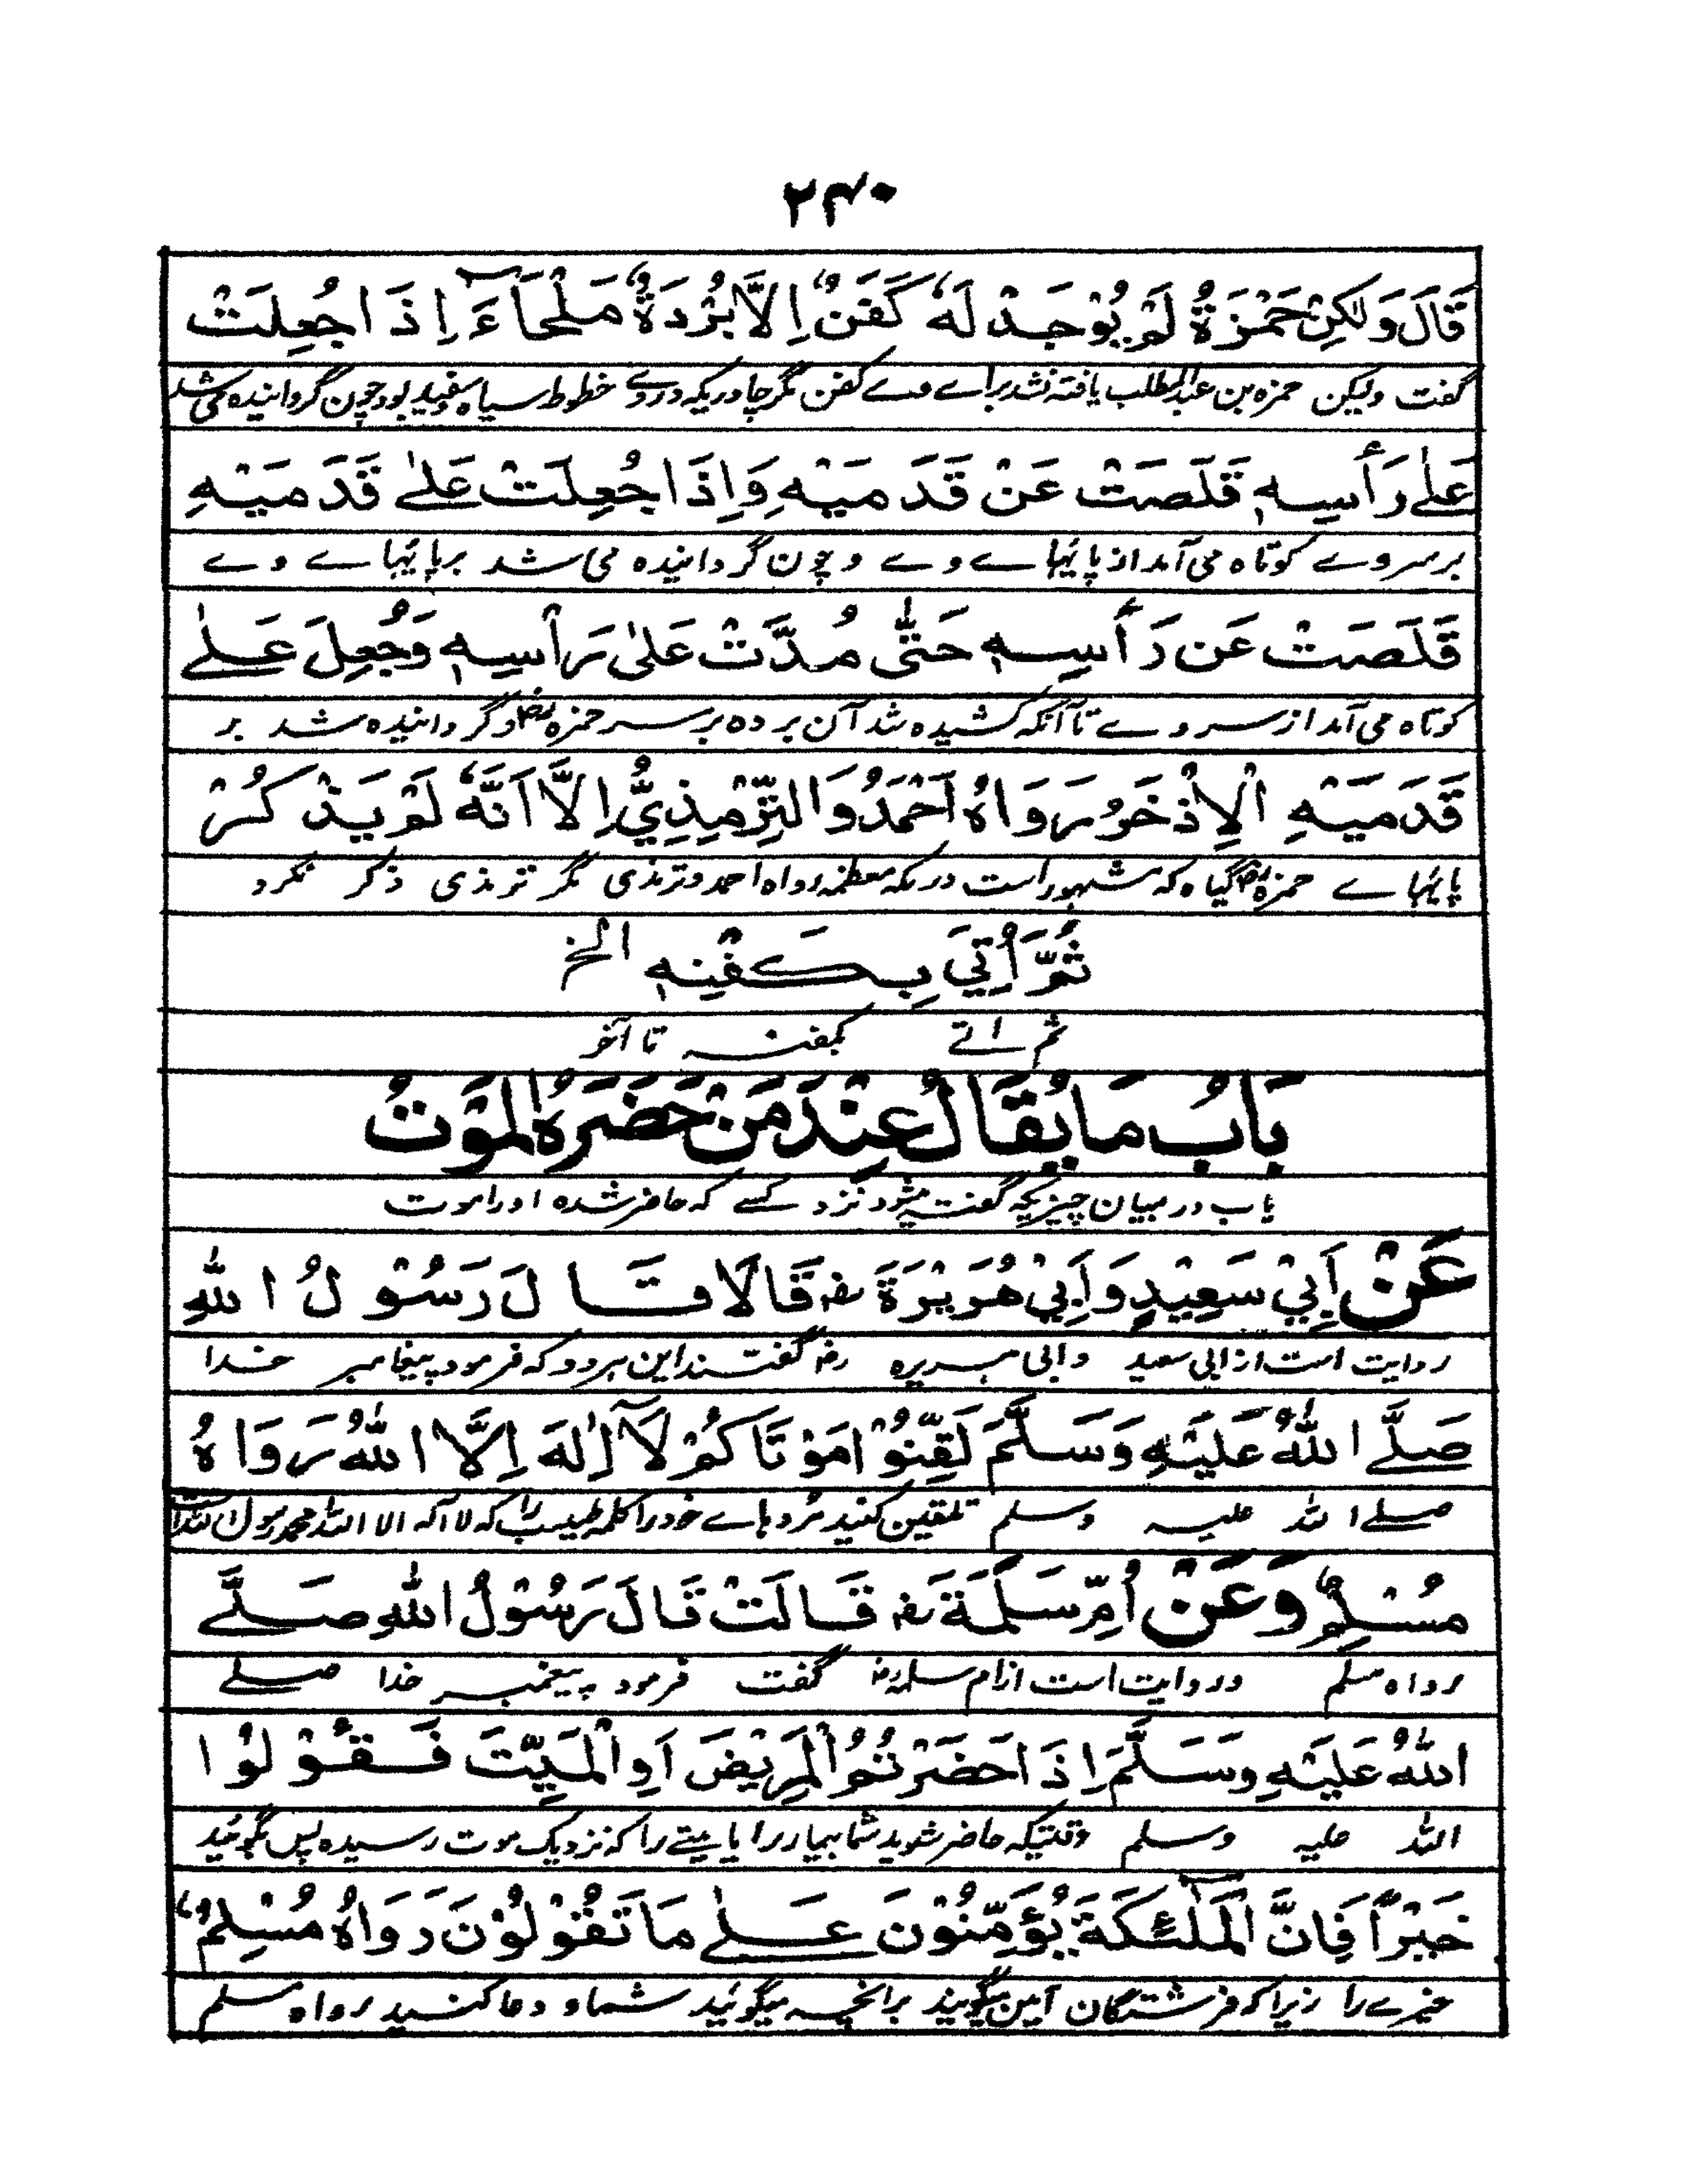 ۲۴۰
قَالَ وَلٰكِنْ حَمْزَةُ لَمْ يُوْجَدْ لَهٗ كَفَنٌ اِلَّا بُرْدَةٌ مَلْحَآءَ اِذَا جُعِلَتْ
گفت ولیکن حمزه بن عبدالمطلب یافته نشد براے وے کفن مگر چادریکه دروے خطوط سیاه وسفید بود چون گردانیده می شد
عَلٰى رَأْسِهٖ قَلَصَتْ عَنْ قَدَمَيْهِ وَاِذَا جُعِلَتْ عَلٰى قَدَمَيْهِ
برسروے کوتاه می آمد از پائیہاے وے وچون گردانیده می شد برپائیہاے وے
قَلَصَتْ عَنْ رَأْسِهٖ حَتّٰى مُدَّتْ عَلٰى رَأْسِهٖ وَجُعِلَ عَلٰى
کوتاه می آمد ازسر وے تاآنکه کشیده شد آن برده برسر حمزهؓ وگردانیده شد بر
قَدَمَيْهِ الْاِذْخَرُ رَوَاهُ اَحْمَدُ وَالتِّرْمِذِيُّ اِلَّا اَنَّهٗ لَمْ يَذْكُرْ
پائیہاے حمزهؓ گیاه که مشہور است در مکه معظمه رواه احمد وترمذی مگر ترمذی ذکر نکرد
ثُمَّ اُتِيَ بِكَفَنِهٖ الخ
ثم اتے بکفنه تا آخر
بَابُ مَا يُقَالُ عِنْدَ مَنْ حَضَرَهُ الْمَوْتُ
باب در بیان چیزیکه گفته میشود نزد کسے که حاضر شده اورا موت
عَنْ اَبِيْ سَعِيْدٍ وَاَبِيْ هُرَيْرَةَ رض قَالَا قَالَ رَسُوْلُ اللهِ
روایت است از ابی سعید وابی ہریره رض گفتند این ہردو که فرمود پیغامبر خدا
صَلَّى اللهُ عَلَيْهِ وَسَلَّمَ لَقِّنُوْا مَوْتَاكُمْ لَآ اِلٰهَ اِلَّا اللهُ رَوَاهُ
صلے الله علیه وسلم تلقین کنید مردہاے خودرا کلمه طیب را که لا اله الا الله محمد رسول الله است
مُسْلِمٌ وَعَنْ اُمِّ سَلَمَةَ رض قَالَتْ قَالَ رَسُوْلُ اللهِ صَلَّى
رواه مسلم وروایت است ازام سلمه رض گفت فرمود پیغمبر خدا صلے
اللهُ عَلَيْهِ وَسَلَّمَ اِذَا حَضَرْتُمُ الْمَرِيْضَ اَوِ الْمَيِّتَ فَقُوْلُوْا
الله علیه وسلم وقتیکه حاضر شوید شما بیماررا یا میتے را که نزدیک موت رسیده پس بگوئید
خَيْرًا فَاِنَّ الْمَلٰٓئِكَةَ يُؤَمِّنُوْنَ عَلٰى مَا تَقُوْلُوْنَ رَوَاهُ مُسْلِمٌ
خیرے را زیراکه فرشتگان آمین میگویند برانچه میگوئید شما و دعا کنید رواه مسلم